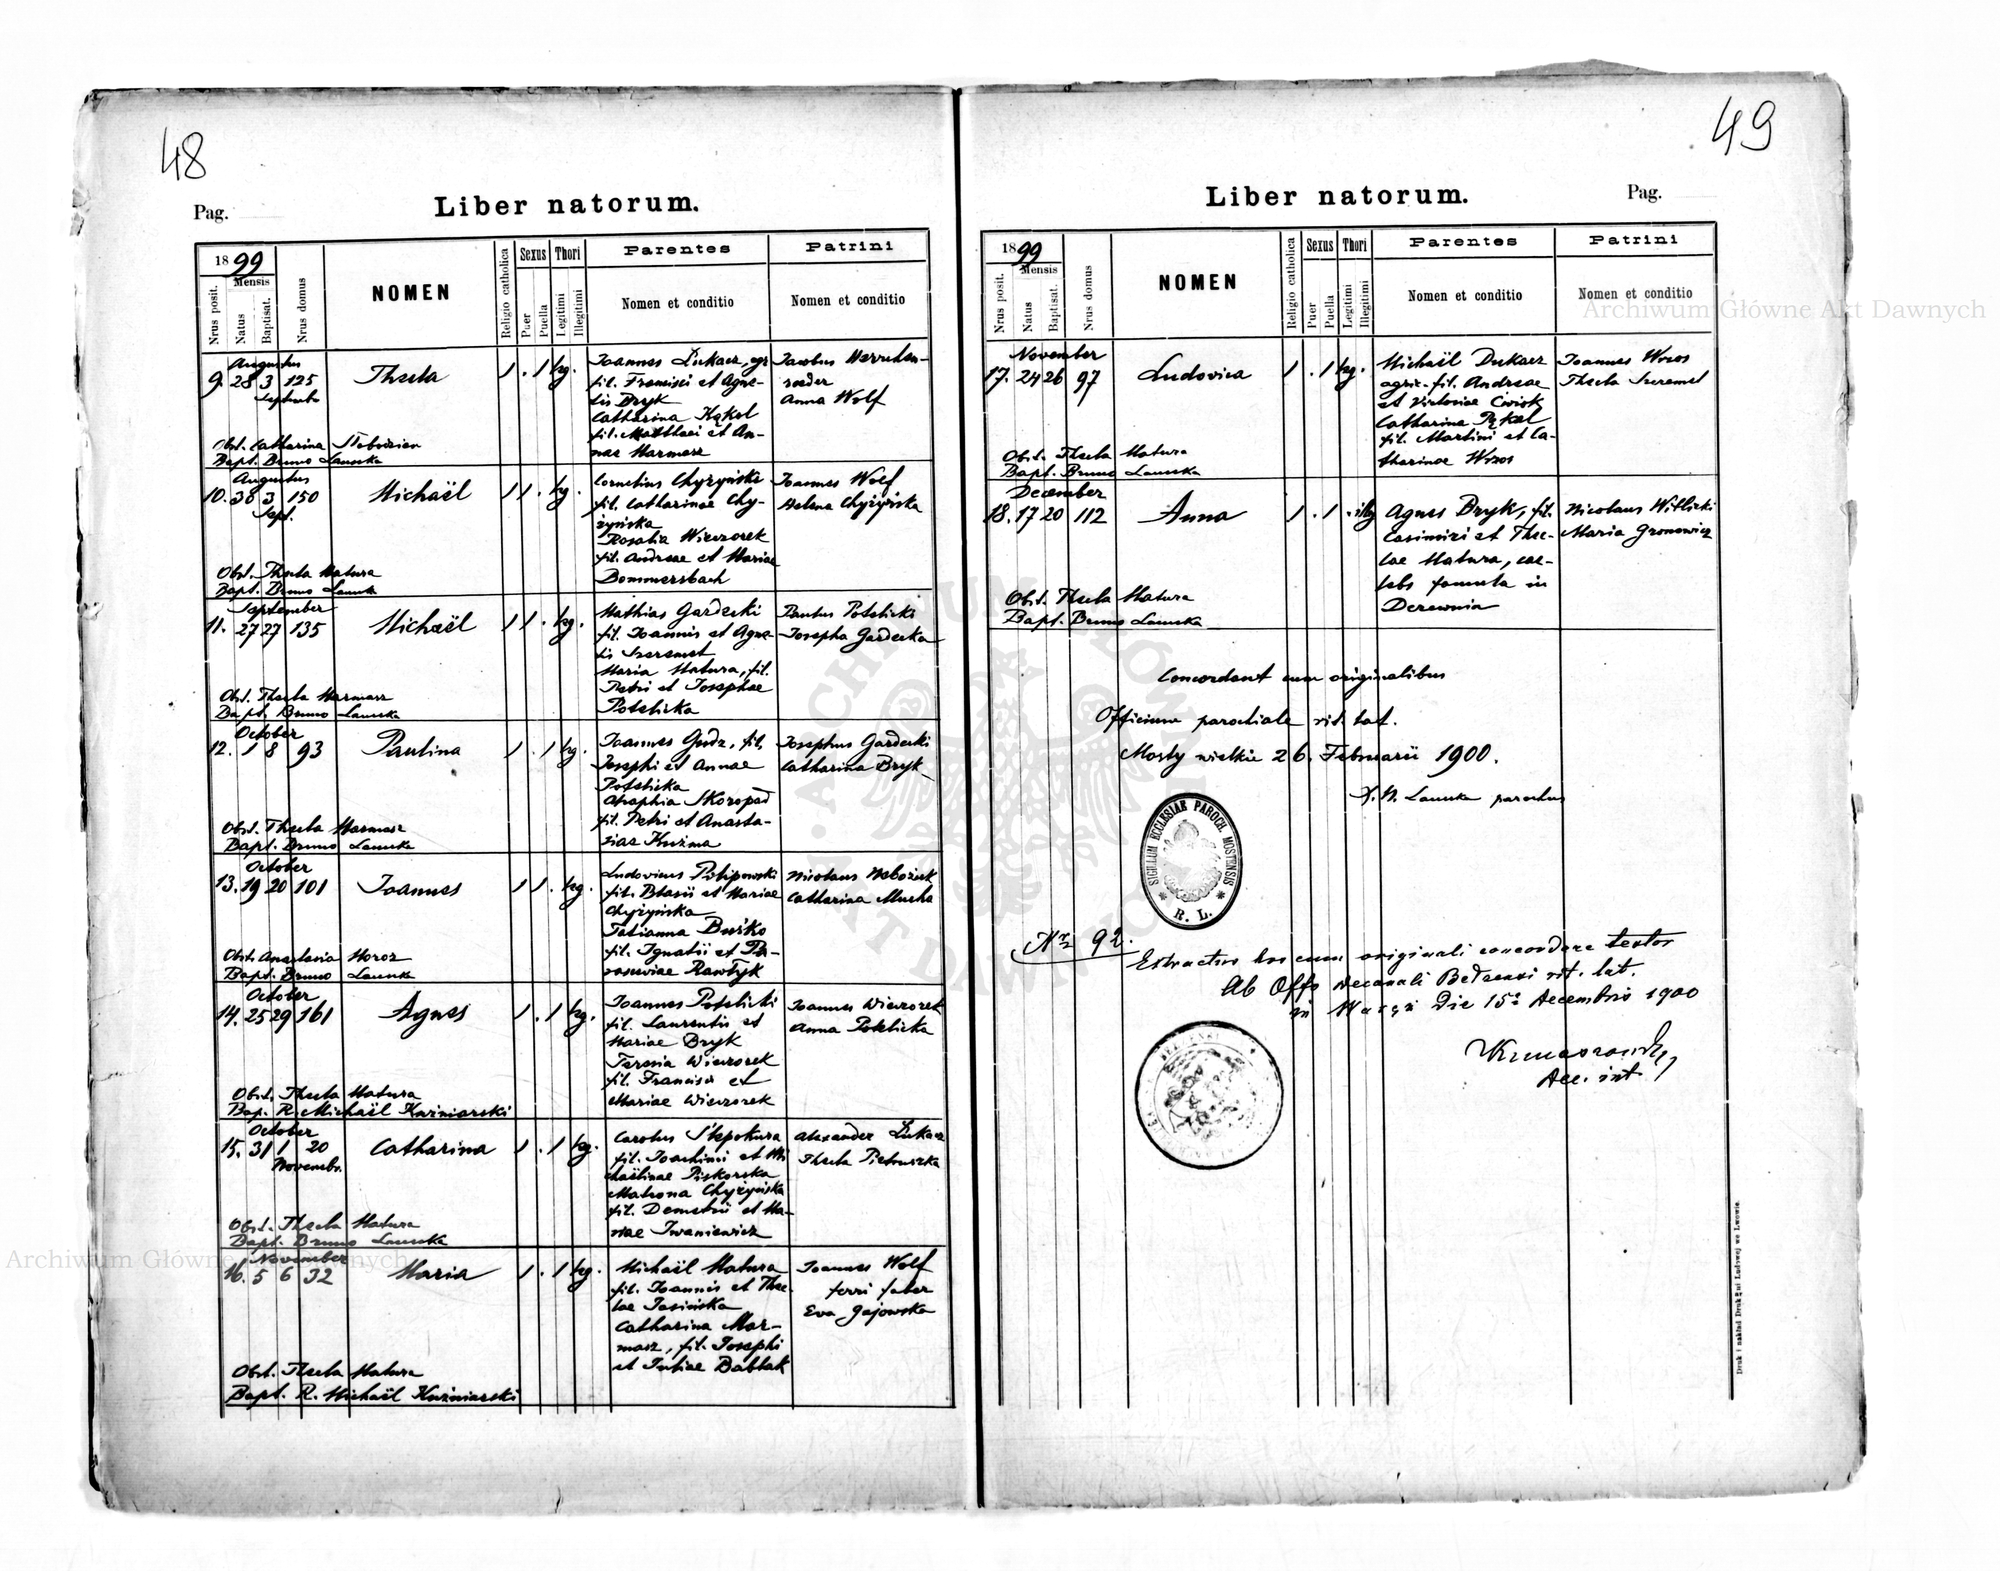 48
Pag.
Liber natorum.
1899
Nrus posit.
Mensis
Natus
Baptisat.
Nrus domus
NOMEN
Religio catholica
Sexus
Puer
Puella
Thori
Legitimi
Illegitimi
Parentes
Nomen et conditio
Patrini
Nomen et conditio
Augustus
9. 28 3 125
Septembr
Thecla
1 . 1 leg.
Joannes Łukacz, agr
fil. Francisci et Agne-
tis Bryk
Catharina Kąkol
fil. Matthaei et An-
nae Harmasz
Jacobus
Anna Wolf
Obst. Catharina
Bapt. Bruno Lanecka
Augustus
10. 30 3 150
Sept.
Michaël
1 1 . leg.
Cornelius Chyżyński
fil. Catharinae Chy-
żyńska
Rosalia Wieczorek
fil. Andreae et Mariae
Bommersbach
Joannes Wolf
Helena Chyżyńska
Obst. Thecla Matura
Bapt. Bruno Lanecka
September
11. 27 27 135
Michaël
1 1 . leg.
Mathias Gardecki
fil. Joannis et Agne-
tis Szeremet
Maria Matura, fil.
Petri et Josephae
Potelicka
Paulus Potelicki
Josepha Gardecka
Obst. Thecla Harmasz
Bapt. Bruno Lanecka
October
12. 1 8 93
Paulina
1 . 1 leg.
Joannes Gudz, fil.
Josephi et Annae
Potelicka
Agaphia Skoropad
fil. Petri et Anasta-
siae Kuźma
Josephus Gardecki
Catharina Bryk
Obst. Thecla Harmasz
Bapt. Bruno Lanecka
October
13. 19 20 101
Joannes
1 1 . leg.
Ludovicus Pilipowski
fil. Blasii et Mariae
Chyżyńska
Tatianna Buśko
fil. Ignatii et Pa-
rasceviae Rawłyk
Nicolaus Nebożuk
Catharina Mucha
Obst. Anastasia Horoz
Bapt. Bruno Lanecka
October
14. 25 29 161
Agnes
1 . 1 leg.
Joannes Potelicki
fil. Laurentii et
Mariae Bryk
Teresia Wieczorek
fil. Francisci et
Mariae Wieczorek
Joannes Wieczorek
Anna Potelicka
Obst. Thecla Matura
Bap. R. Michaël Kuźniarski
October
15. 31 1 20
Novembr.
Catharina
1 . 1 leg.
Carolus Ślepokura
fil. Joachimi et Mi
chaëlinae Piskorska
Matrona Chyżyńska
fil. Demetrii et Ma-
riae Iwaniewicz
Alexander Łukacz
Thecla Pietruszka
Obst. Thecla Matura
Bapt. Bruno Lanecka
November
16. 5 6 32
Maria
1 . 1 leg.
Michaël Matura
fil. Joannis et Thec-
lae Jasińska
Catharina Har-
masz, fil. Josephi
et Juliae Bablak
Joannes Wolf
ferri faber
Eva Gajowska
Obst. Thecla Matura
Bapt. R. Michaël Kuźniarski
49
Liber natorum.
Pag.
1899
Nrus posit.
Mensis
Natus
Baptisat.
Nrus domus
NOMEN
Religio catholica
Sexus
Puer
Puella
Thori
Legitimi
Illegitimi
Parentes
Nomen et conditio
Patrini
Nomen et conditio
November
17. 24 26 97
Ludovica
1 . 1 leg.
Michaël Dukacz
agric. fil. Andreae
et Victoriae Ćwiok
Catharina Pękal
fil. Martini et Ca-
tharinae Wozos
Joannes Wozos
Thecla Szeremet
Obst. Thecla Matura
Bapt. Bruno Lanecka
December
18. 17 20 112
Anna
1 . 1 . illeg
Agnes Bryk, fil.
Casimiri et Thec-
lae Matura, cae-
lebs famula in
Derewnia
Nicolaus Witlicki
Maria Gronowicz
Obst. Thecla Matura
Bapt. Bruno Lanecka
Concordant cum originalibus
Officium parochiale rit. lat.
Mosty wielkie 26. Februarii 1900.
X. B. Lanecka parochus
SIGILLUM ECCLESIAE PAROCH. MOSTENSIS
R. L.
Nr 92.
Extractus hos cum originali concordare testor
Ab Offo decanali Bełzensi rit. lat.
in Waręż Die 15a Decembris 1900
Dec. int.
Druk i nakład Drukarni Ludowej we Lwowie.
Archiwum Główne Akt Dawnych
Archiwum Główne Akt Dawnych
ARCHIWUM GŁÓWNE AKT DAWNYCH